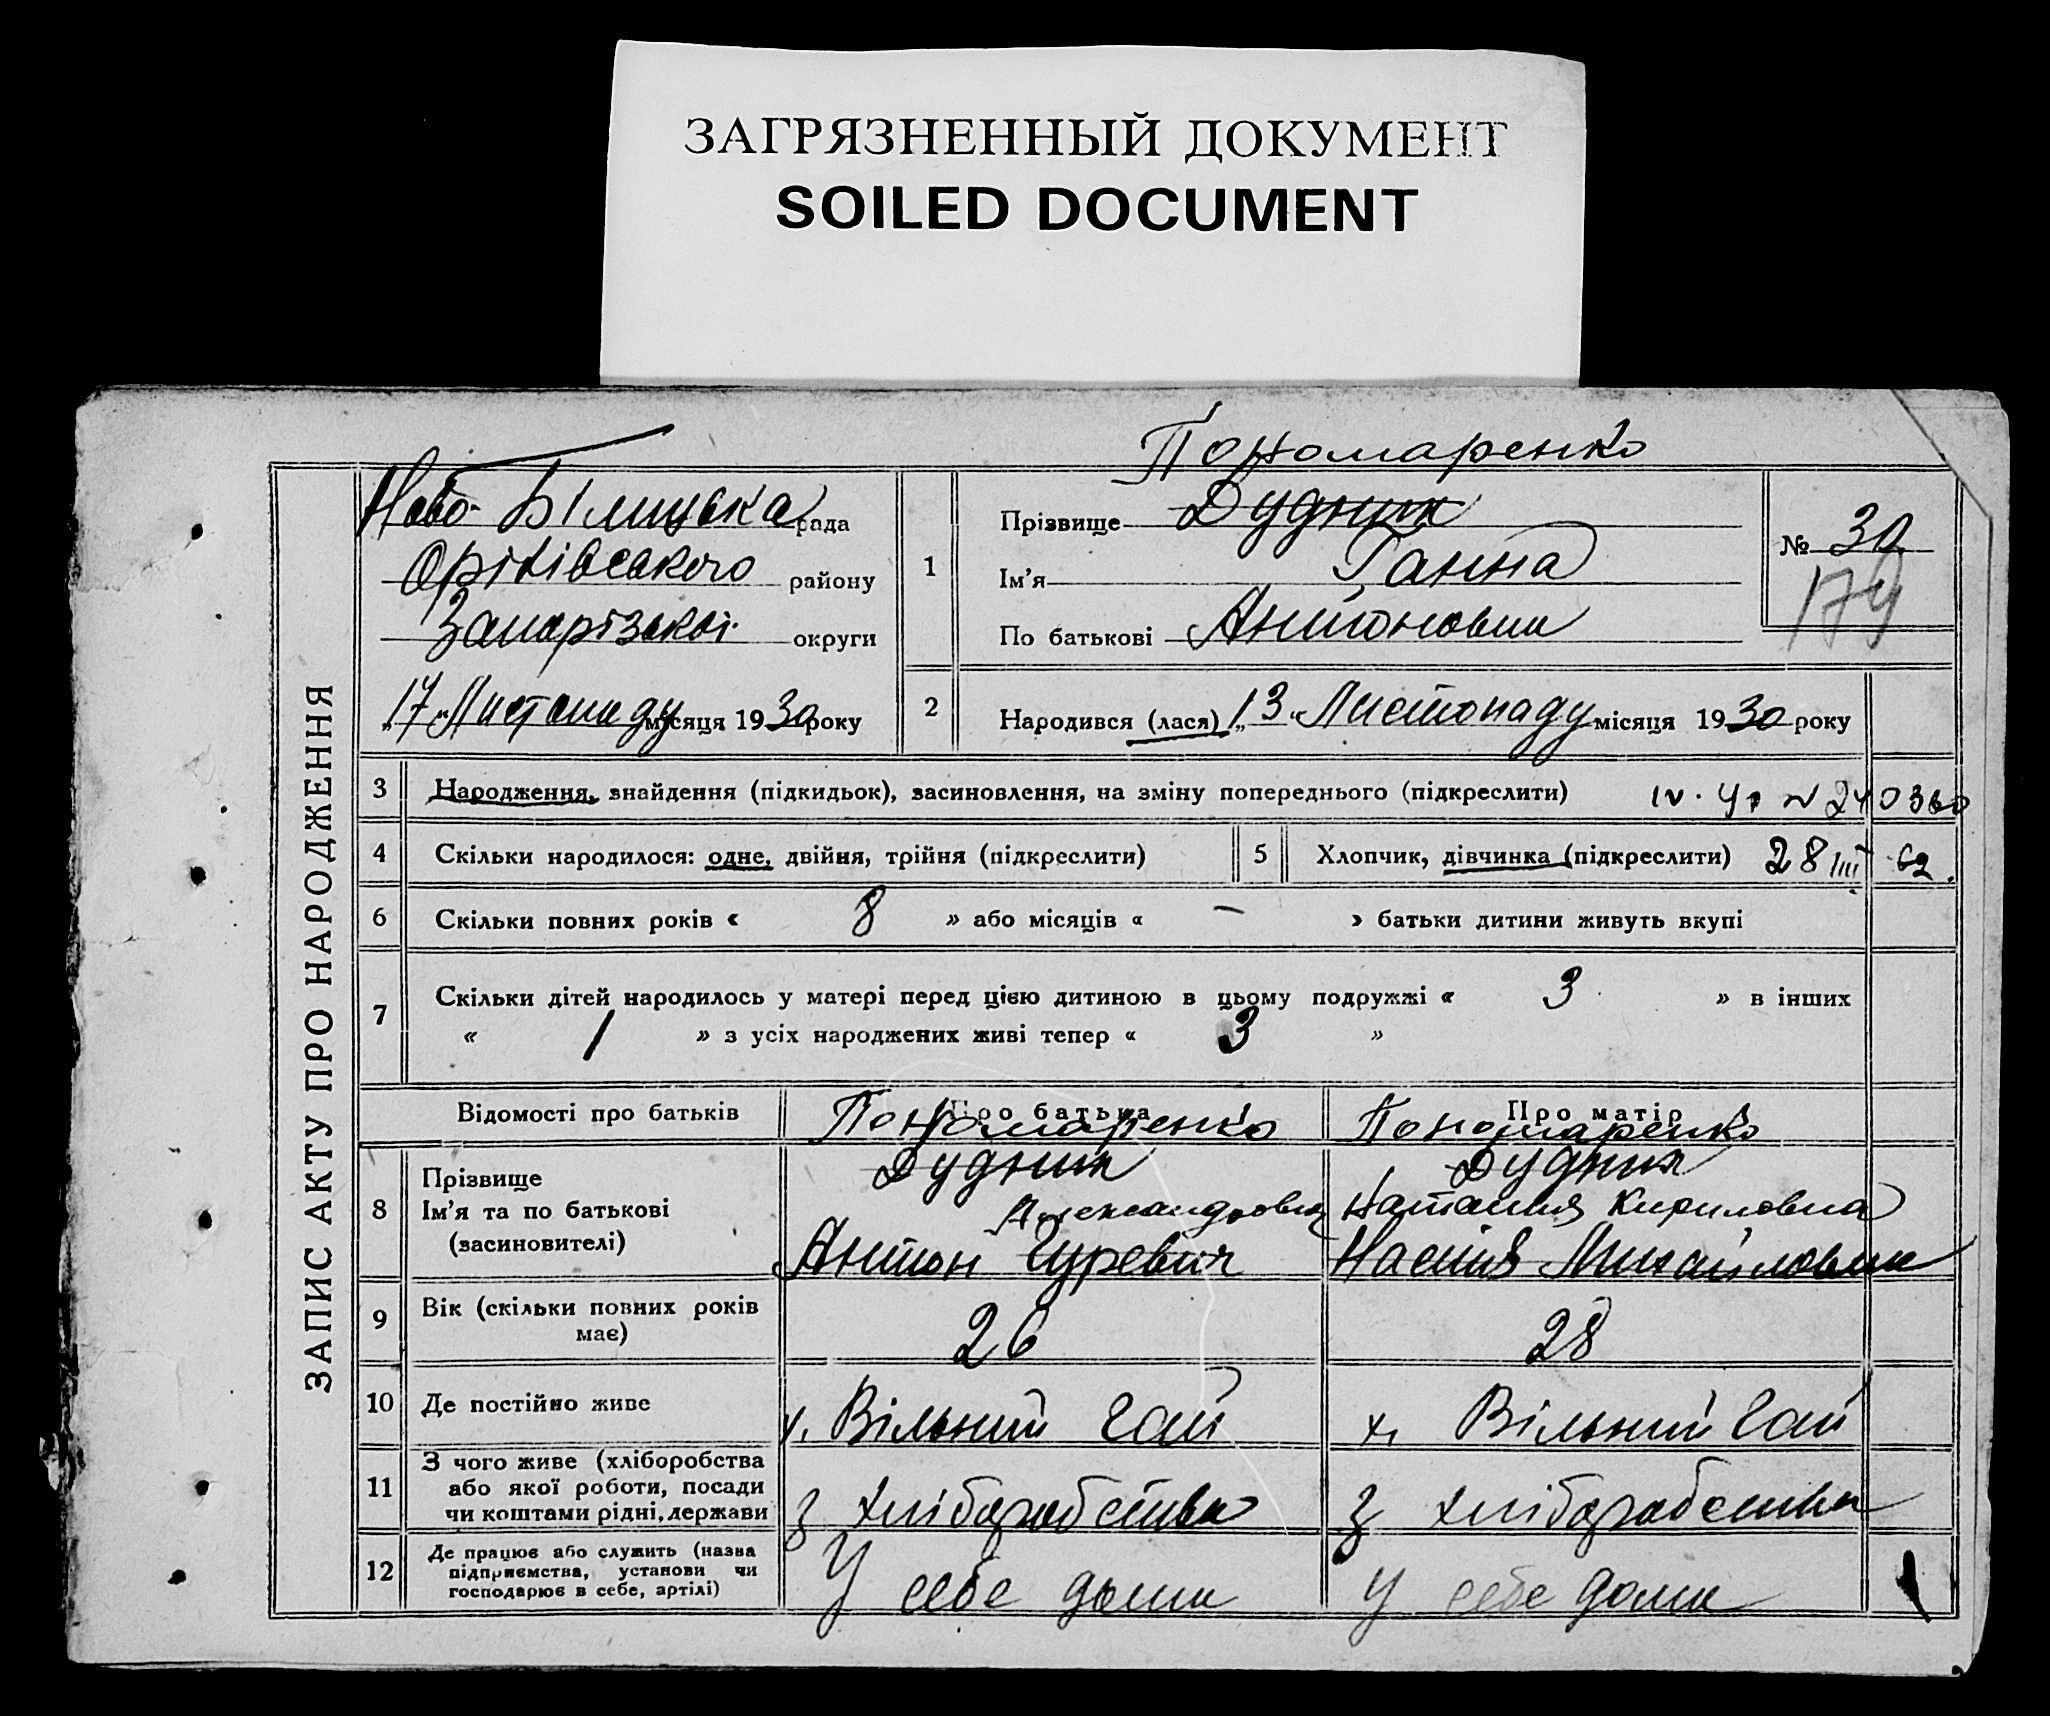 ЗАГРЯЗНЕННЫЙ ДОКУМЕНТ
SOILED DOCUMENT
ЗАПИС АКТУ ПРО НАРОДЖЕННЯ
Ново-Білицька рада
Оріхівського району
Запорізької округи
„17" Листопаду місяця 1930 року
1
Пономаренко
Прізвище Дудник
Ім'я Ганна
По батькові Антоновна
№ 30
179
2
Народився (лася) „13" Листопаду місяця 1930 року
3 Народження, знайдення (підкидьок), засиновлення, на зміну попереднього (підкреслити)
№ 240360
4 Скільки народилося: одне, двійня, трійня (підкреслити) 5 Хлопчик, дівчинка (підкреслити) 28 III 62.
6 Скільки повних років « 8 » або місяців « - » батьки дитини живуть вкупі
7 Скільки дітей народилось у матері перед цією дитиною в цьому подружжі « 3 » в інших
« 1 » з усіх народжених живі тепер « 3 »
Відомості про батьків Про батька Про матір
Пономаренко Пономаренко
8 Прізвище Дудник Дудник
Ім'я та по батькові Александрович Наталия Кириловна
(засиновителі) Антон Гуревич Настія Михайловна
9 Вік (скільки повних років має) 26 28
10 Де постійно живе х. Вільний Гай х. Вільний Гай
11 З чого живе (хліборобства
або якої роботи, посади
чи коштами рідні, держави З хліборобства З хліборобства
12 Де працює або служить (назва
підприємства, установи чи
господарює в себе, артілі) У себе дома У себе дома